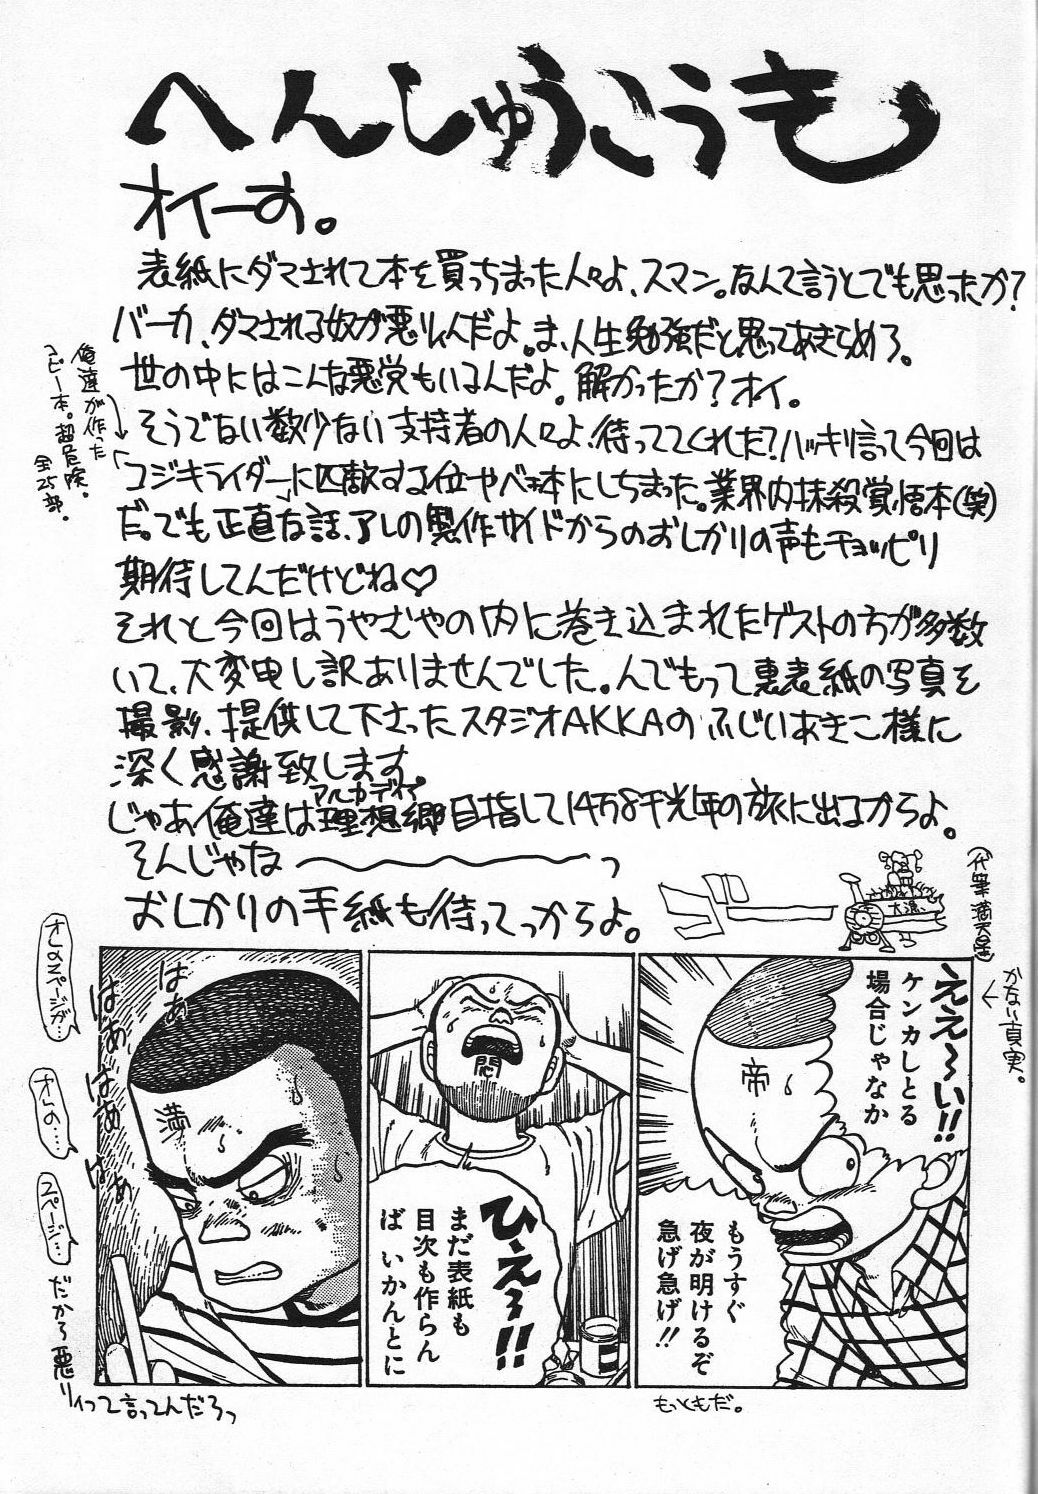 へんしゅうこうき
オイーす。
表紙にダマされて本を買っちまった人々よ、スマン。なんて言うとでも思ったか？
バーカ、ダマされる奴が悪りいんだよ。ま、人生勉強だと思ってあきらめろ。
世の中にはこんな悪党もいるんだよ。解かったか？オイ。
そうでない数少ない支持者の人々よ、待っててくれた？ハッキリ言って今回は
コジキライダーに匹敵する位ヤベェ本にしちまった。業界内抹殺覚悟本(笑)
だ。でも正直な話、アレの製作サイドからのおしかりの声もチョッピリ
期待してんだけどね♡
それと今回はうやむやの内に巻き込まれたゲストの方が多数
いて、大変申し訳ありませんでした。んでもって裏表紙の写真を
撮影、提供して下さったスタジオAKKAのふじいあきこ様に
深く感謝致します。
じゃあ俺達は理想郷目指して14万8千光年の旅に出るからよ。
アルカディア
そんじゃな〜っ
おしかりの手紙も待ってっからよ。
俺達が作った
コピー本。超危険。
全25部。
(代筆 満天星)
かない真実。
ええ〜い!!
ケンカしとる
場合じゃなか
帝
もうすぐ
夜が明けるぞ
急げ急げ!!
もっともだ。
悶
ひえ〜!!
まだ表紙も
目次も作らん
ば いかんとに
はぁ
はぁ
はぁ
はぁ
満
オレのページが…
オレの…
ページ…
だから悪りィって言ってんだろっ